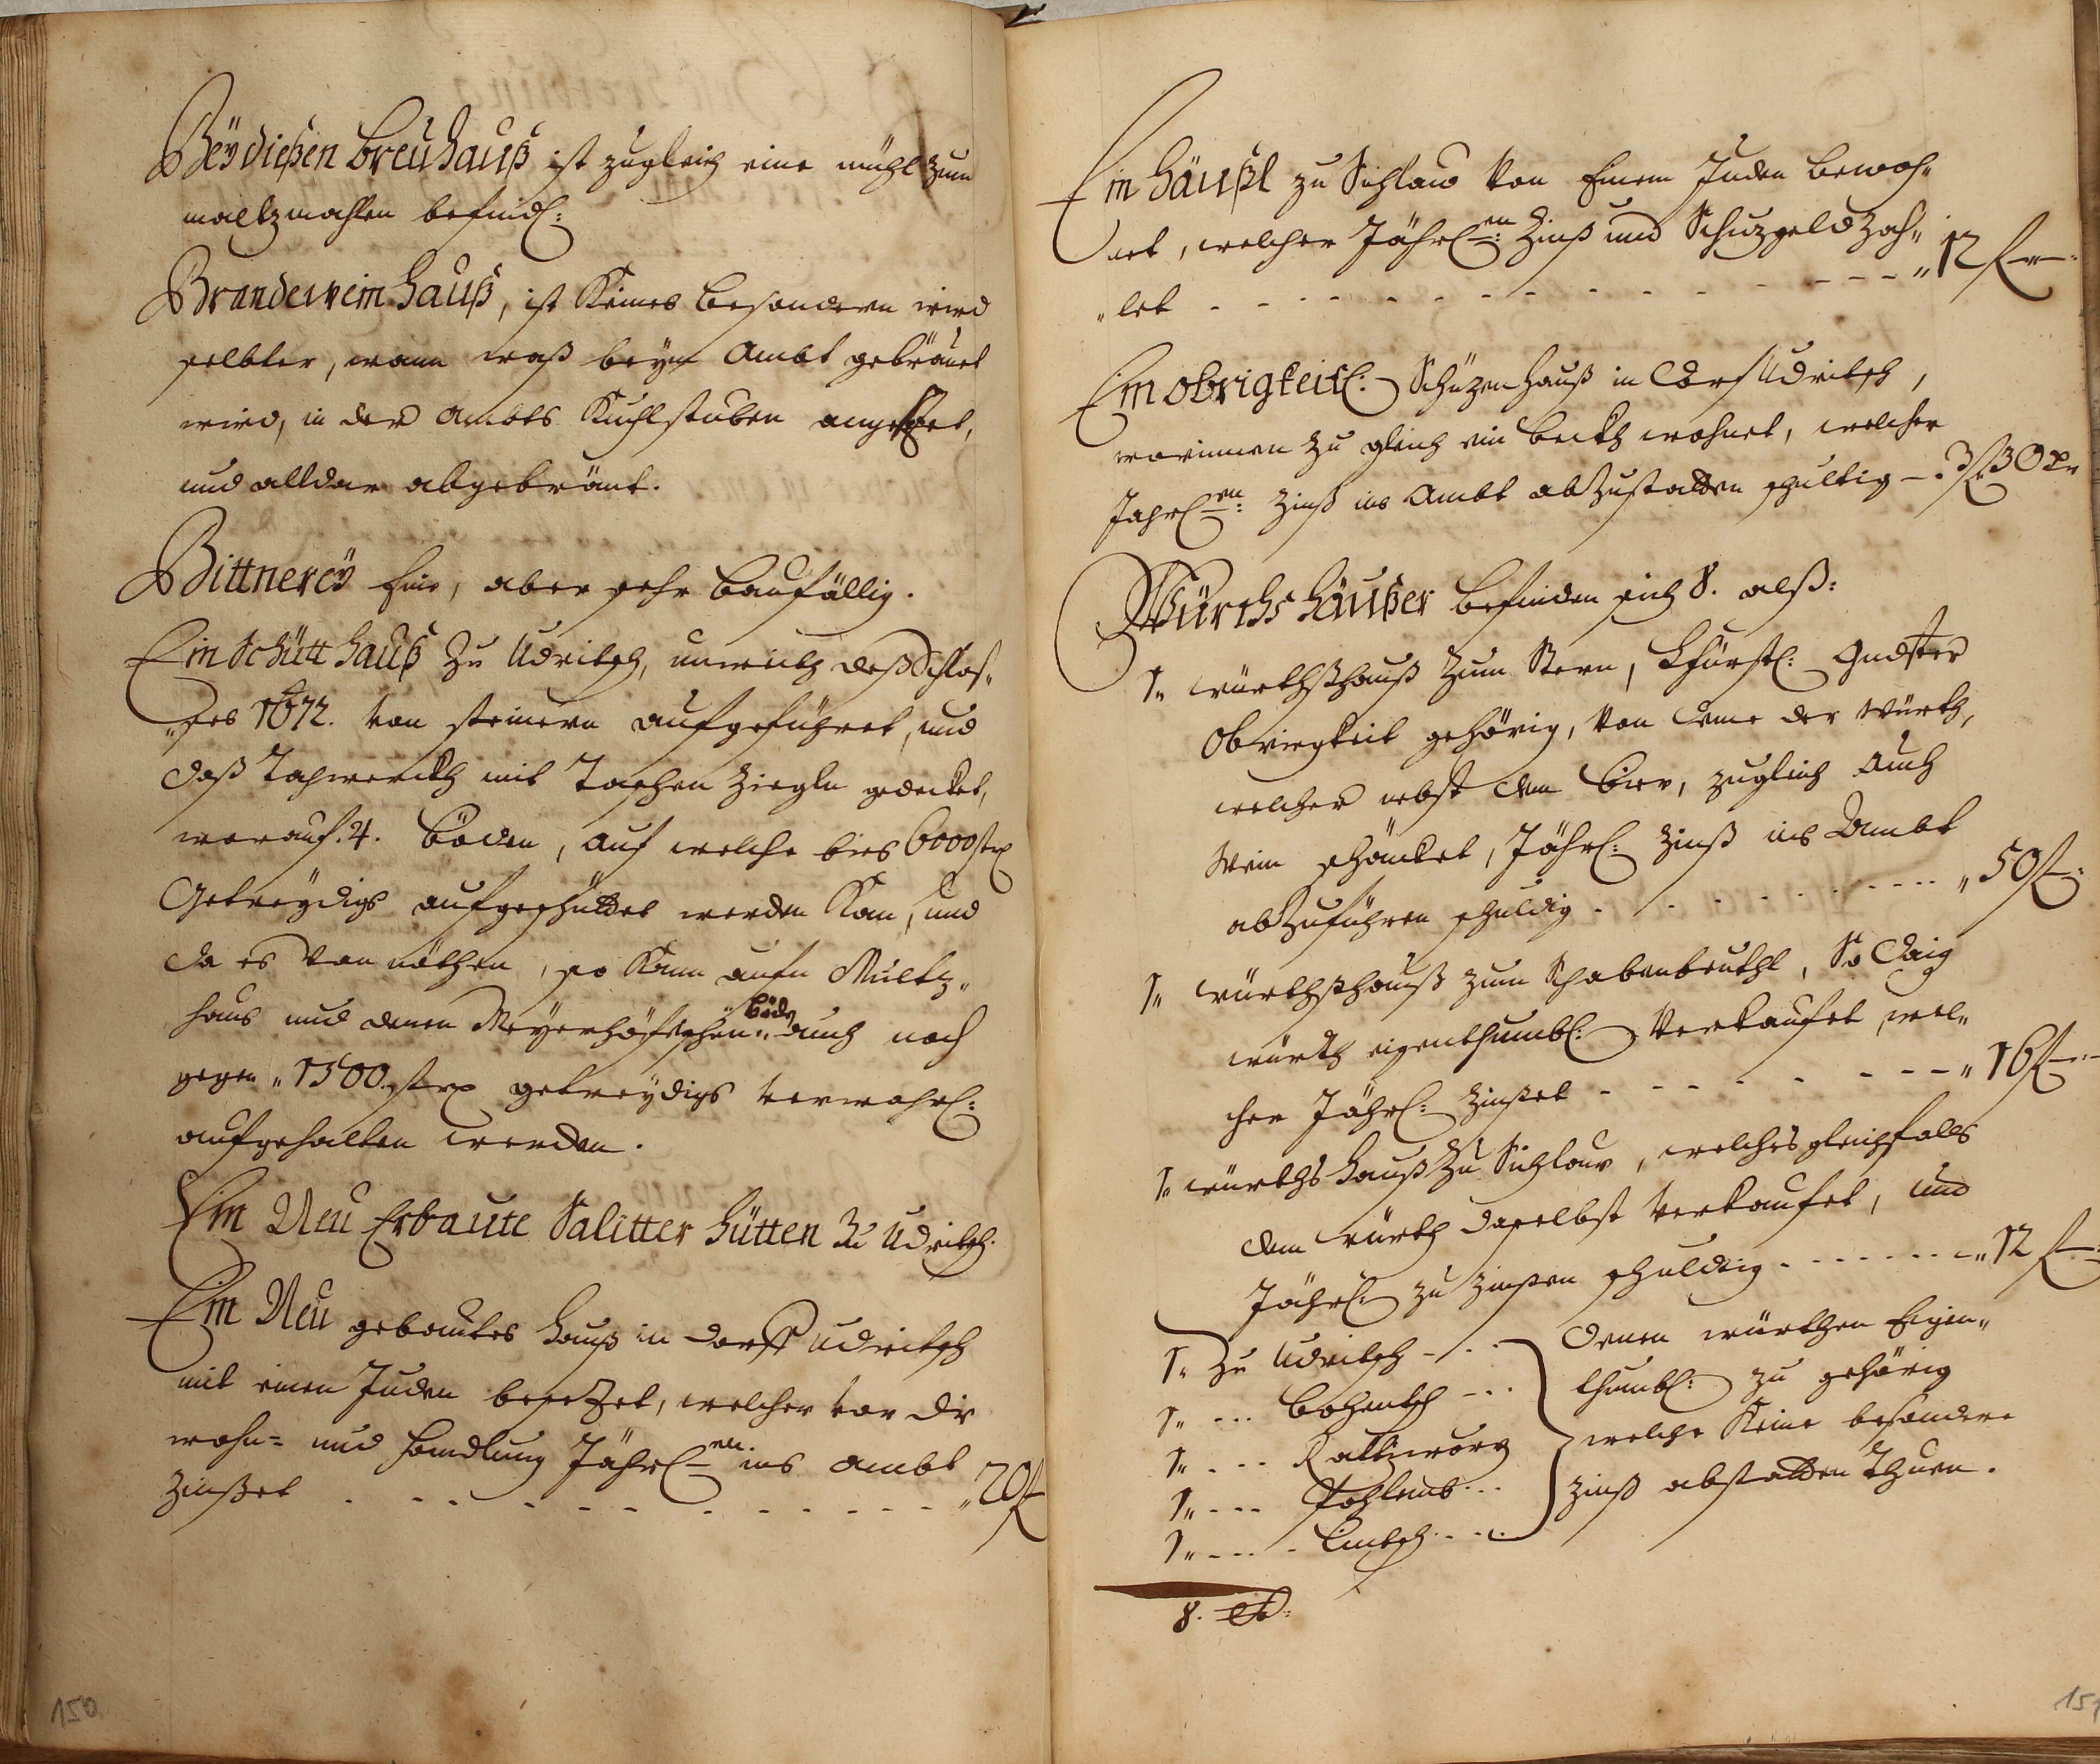 Beÿ dießen Breuhauß ist zugleich eine mühl zum
maltzmahlen befindl:
Brandewein hauß, ist Keines besondern wird
selbter, wann waß beym Ambt gebränet
wird, in der Ambts Kuchlstuben angesezet,
und alldar abgebränt.
Bittnereÿ Eine, aber sehr baufällig.
Ein Schütt hauß zu Udritsch, unweith deß Schlos„
„ses 1672. von steinern aufgeführet, und
daß Tachwerckh mit Taschen Ziegln gedecket,
worauf. 4. Böden, auf welche bies 6000 strx
Getreydigs aufgeschüttet werden Kan, und
da es von nöthen, so Kann aufn Multz„
haus und denen Meyerhöfischen böd auch noch
gegen „ 1500. strx getreydigs verwahrl:
aufgehalten werden.
Ein Neu Erbaute Salitter hütten zu Udritsch.
Ein Neu gebautes hauß in dorff Udritsch
mit einen Juden besezet, welcher vor die
wohn= und handlung Jährlen ins Ambt
zinßet „ 20 f
150
Ein häußl zu Sichlau von Einem Juden bewoh„
net, welcher Jährlen: Zinß und Schuzgeld zah„
„let „ 12 f
Ein obrigkeitl: Schüzen hauß in Dorf Udritsch,
worinnen zu gleich ein beckh wohnet, welcher
Jahrlen: Zinß ins Ambt abzustatten schultig 3 f 30 xr
Würths häußer befinden sich 8. alß:
1„ würthshauß zum Stern, Chfürstl: Gndster
Obrigkeit gehörig, von deme der Würth,
welcher nebst dem bier, zugleich Auch
Wein schäncket, Jährl: zinß ins Ambt
abzuführen schuldig „ 50 f
1„ würthshauß zum Schabenbeuthl, So daig
würth eigenthumbl: Verkaufet, wel„
cher Jährl: zinßet „ 16 f
1„ würths hauß zu Sichlau, welches gleichfalls
dem würth daselbst Verkaufet, und
Jährl: zu zinßen schuldig „ 12 f
1„ zu Udritsch denen würthen Eigen„
1„ Bohentsch thumbl: zu gehörig
1„ Rattiworz welche Keine besondere
1„ Pohlemb zinß abstatten thuen.
1„ Lintsch
8.
151